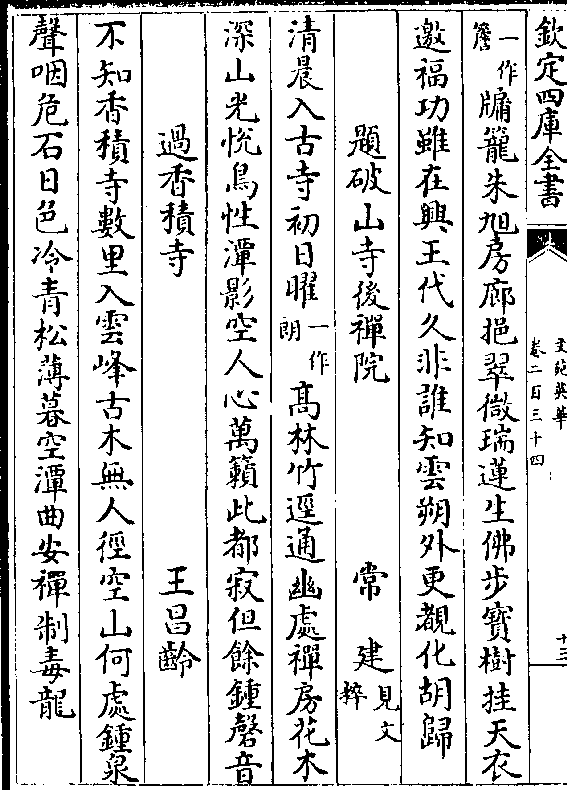 欽定四庫全書
文苑英華
卷二百三十四
十三
一作簷牗籠朱旭房廊挹翠微瑞蓮生佛步寳樹挂天衣
邀福功雖在興王代久非誰知雲朔外更覩化胡歸
題破山寺後禪院 常建見文粹
清晨入古寺初日曜一作朗髙林竹逕通幽處禪房花木
深山光悦鳥性潭影空人心萬籟此都寂但餘鍾磬音
過香積寺 王昌齡
不知香積寺數里入雲峰古木無人徑空山何處鍾泉
聲咽危石日色冷青松薄暮空潭曲安禪制毒龍